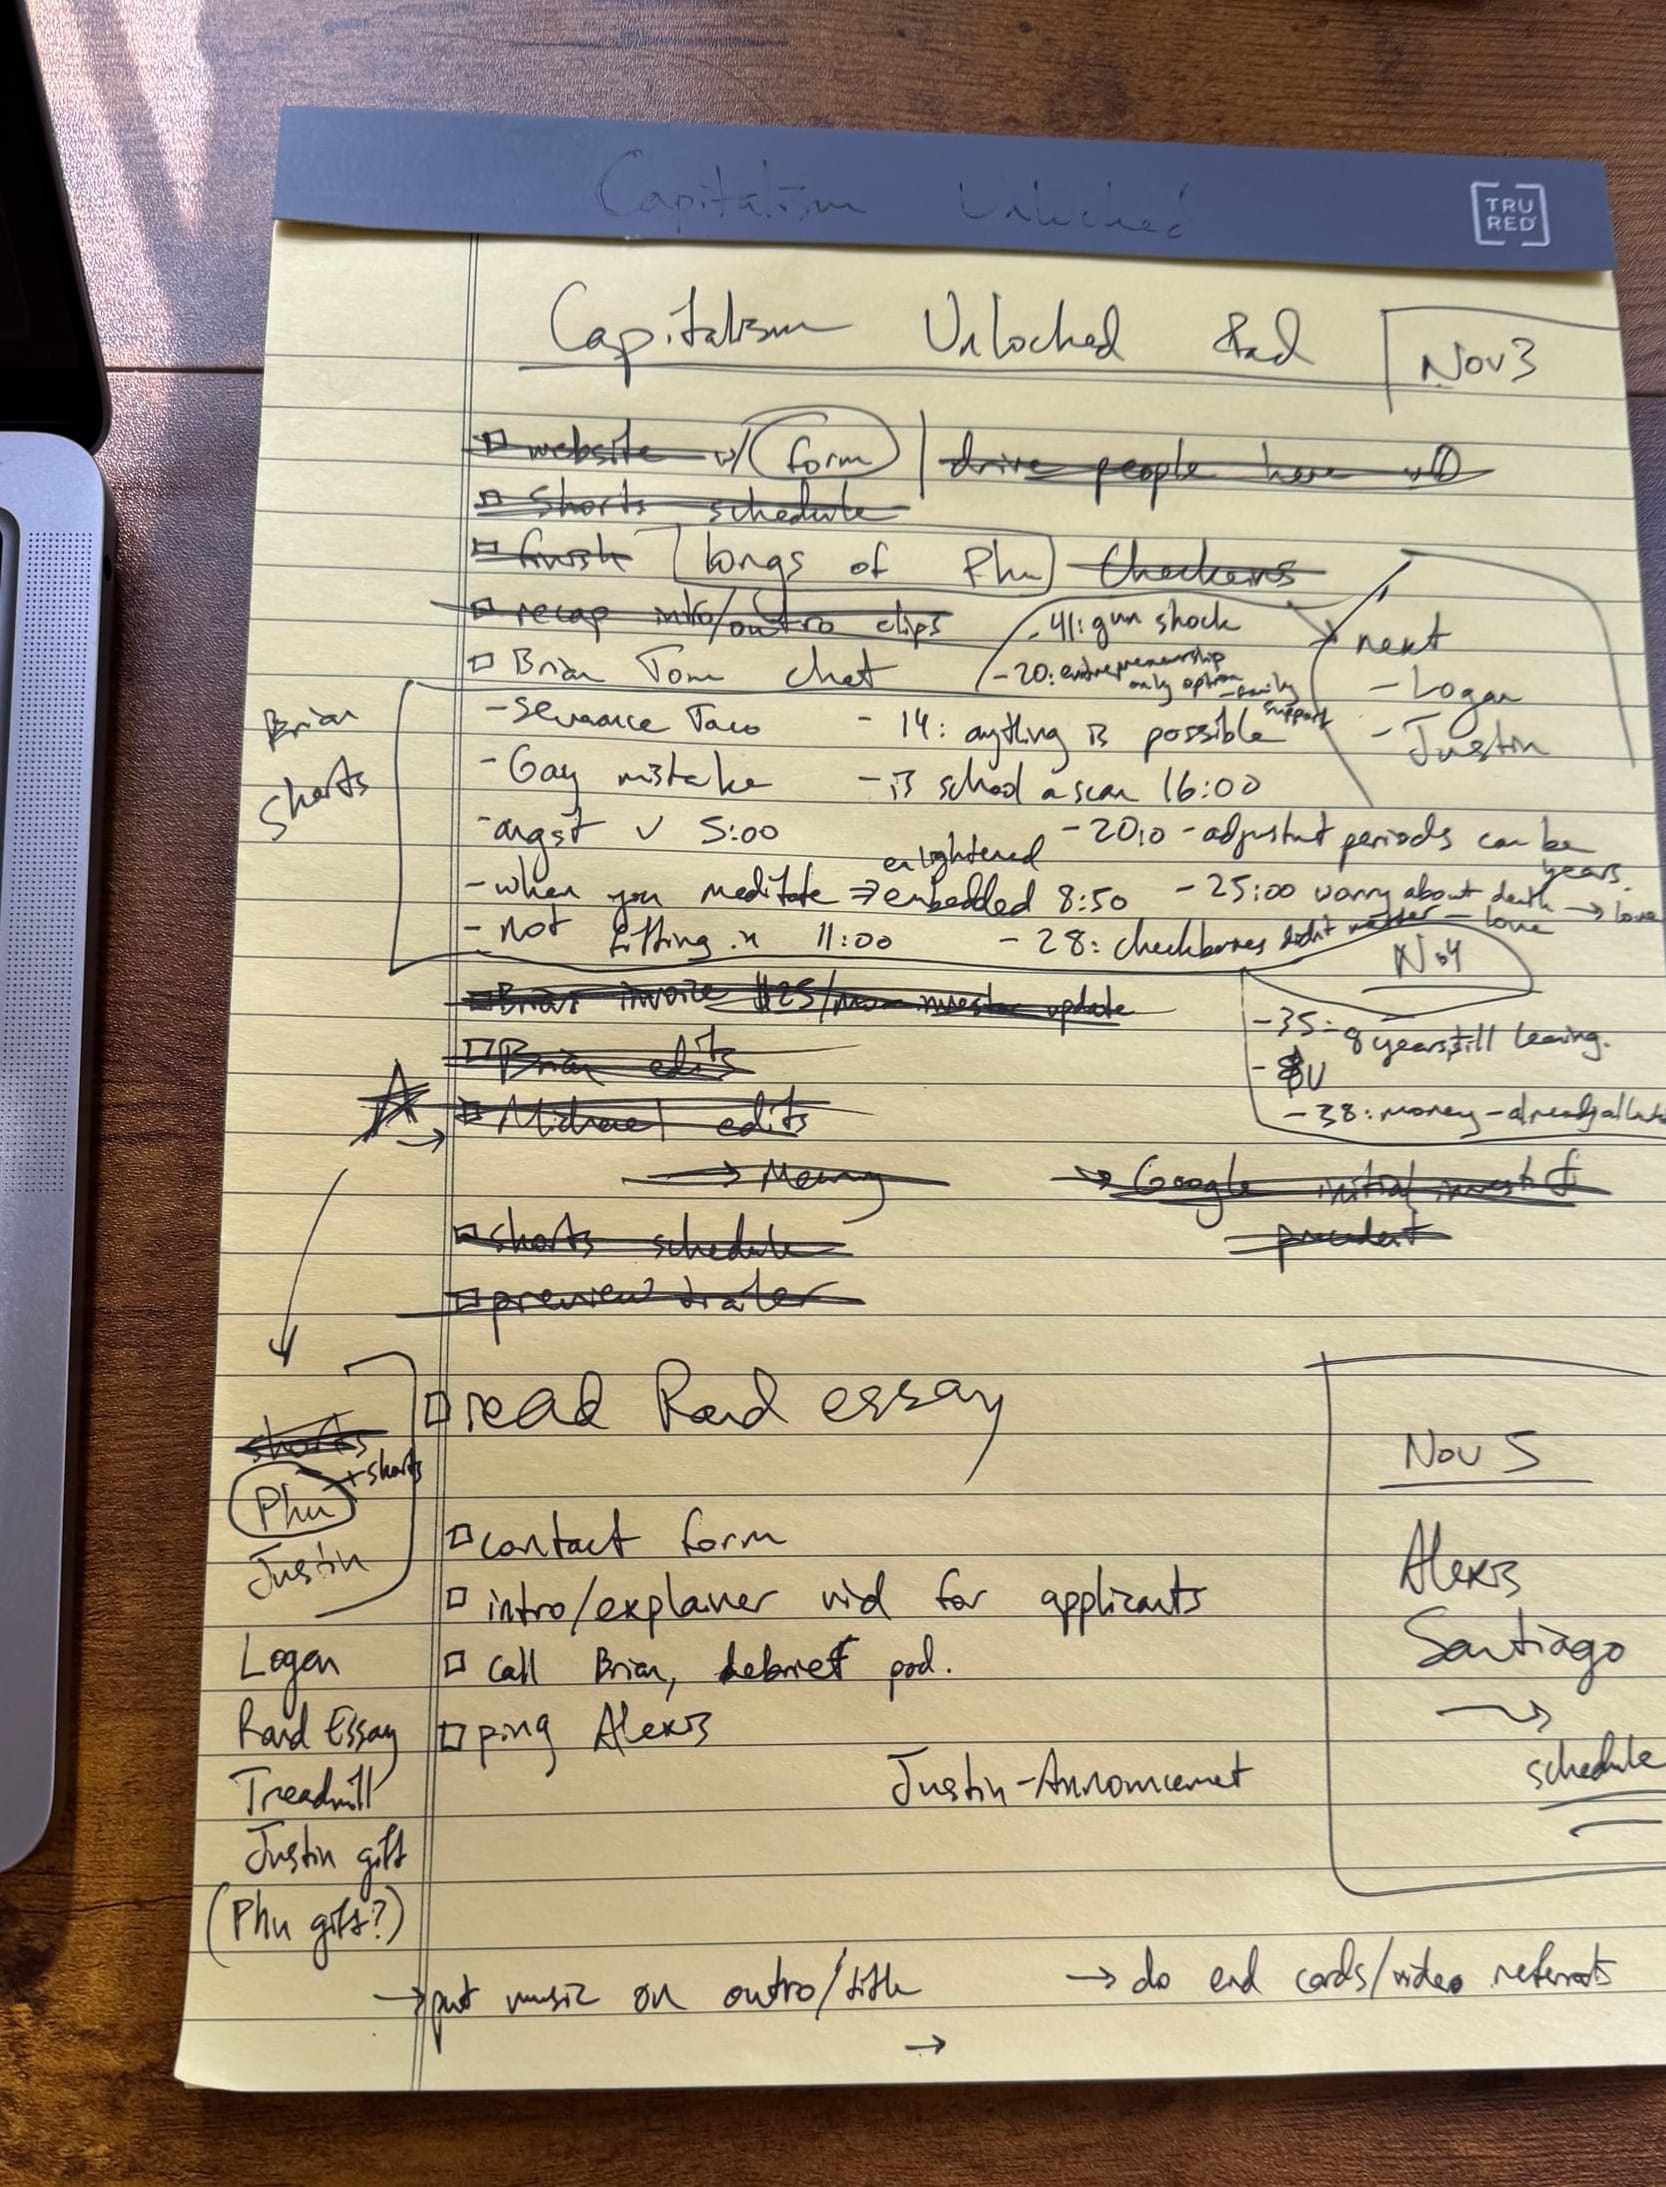 Capitalism Unlocked
TRU
RED
Capitalism Unlocked
Nov 3
website w/ form | drive people here
shorts schedule
finish longs of Phu
recap intro/outro clips
- 41: gun shock
next
Brian Tom chat
- 20: entrepreneurship
only option - family
support
- Logan
Brian
Shorts
- severance Taco
- 14: anything is possible
- Justin
- Gay mistake
- is school a scam 16:00
- angst v 5:00
- 20:0 - adjustmt periods can be
years.
enlightened
- when you meditate → embedded 8:50
- 25:00 worry about death → love
- not fitting in 11:00
- 28: checkboxes didn't matter - love
Nov 4
Brian invoice $25/ investor update
- 35: 8 years, still learning.
Brian edits
Michael edits
- 38: money - already
→ Google initial invest
precedent
shorts schedule
preview trailer
read Rand essay
shorts
Phu + shorts
Justin
Nov 5
contact form
Alexis
intro/explainer vid for applicants
Santiago
Logan
call Brian, debrief pod.
schedule
Rand Essay
ping Alexis
Treadmill
Justin - Announcemet
Justin gift
(Phu gift?)
→ put music on outro/title
→ do end cards/video referrals
→